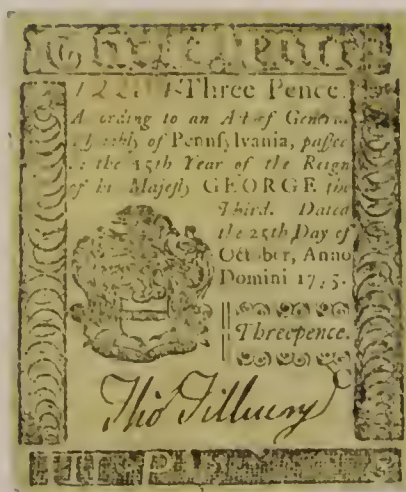 Three Pence.
Three Pence.
A ording to an Act of General
of Pennſylvania, paſſed
the 15th Year of the Reign
of hi Majeſty GEORGE the
Third. Dated
the 25th Day of
October, Anno
Domini 1775.
Threepence.
Tho Tilbury